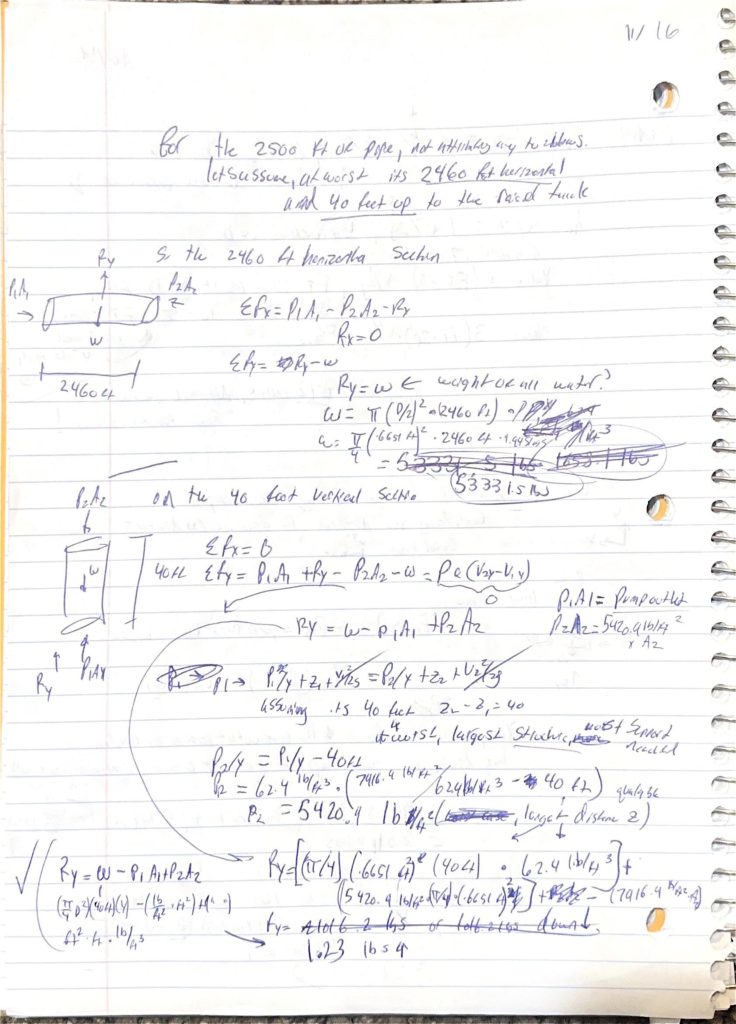 11/16
For the 2500 ft of pipe, not attributing any to elbows.
lets assume, at worst its 2460 feet horizontal
and 40 feet up to the raised tank
So the 2460 ft horizontal Section
Ry
P1A1 →
P2A2
W
2460 ft
ΣFx = P1A1 - P2A2 - Rx
Rx = 0
ΣFy = Ry - w
Ry = w ← weight of all water?
w = π (D/2)² · (2460 ft) ·
w = π/4 (.6651 ft)² · 2460 ft ·
= 53331.5 lbs 1653.1 lbs
53331.5 lbs
on the 40 foot vertical Section
P2A2
w
40 ft
Ry
P1A1
ΣFx = 0
ΣFy = P1A1 + Ry - P2A2 - w = ρQ(V2y - V1y)
0
Ry = w - P1A1 + P2A2
P1A1 = Pump outlet
P2A2 = 5420.9 lb/ft² × A2
P1 → P1/γ + z1 + V1²/2g = P2/γ + z2 + V2²/2g
assuming its 40 feet z2 - z1 = 40
at worst, largest structure, most support needed
P2/γ = P1/γ - 40 ft
P2 = 62.4 lb/ft³ · (7916.9 lb/ft² / 62.4 lb/ft³ - 40 ft)
P2 = 5420.9 lb/ft² (worst case, largest distance z)
Ry = w - P1A1 + P2A2
ft² · ft · lb/ft³
Ry = [(π/4)(.6651 ft)² (40 ft) · 62.4 lb/ft³] +
[(5420.9 lb/ft²)(π/4)(.6651 ft)²] - (7916.9 lb/ft² · A)
Ry = 1016.2 lbs or 1016.2 lbs down
1.23 lbs ↑